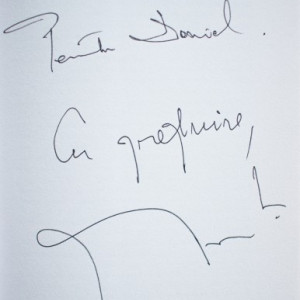 Pentru Daniel.
Cu prețuire,